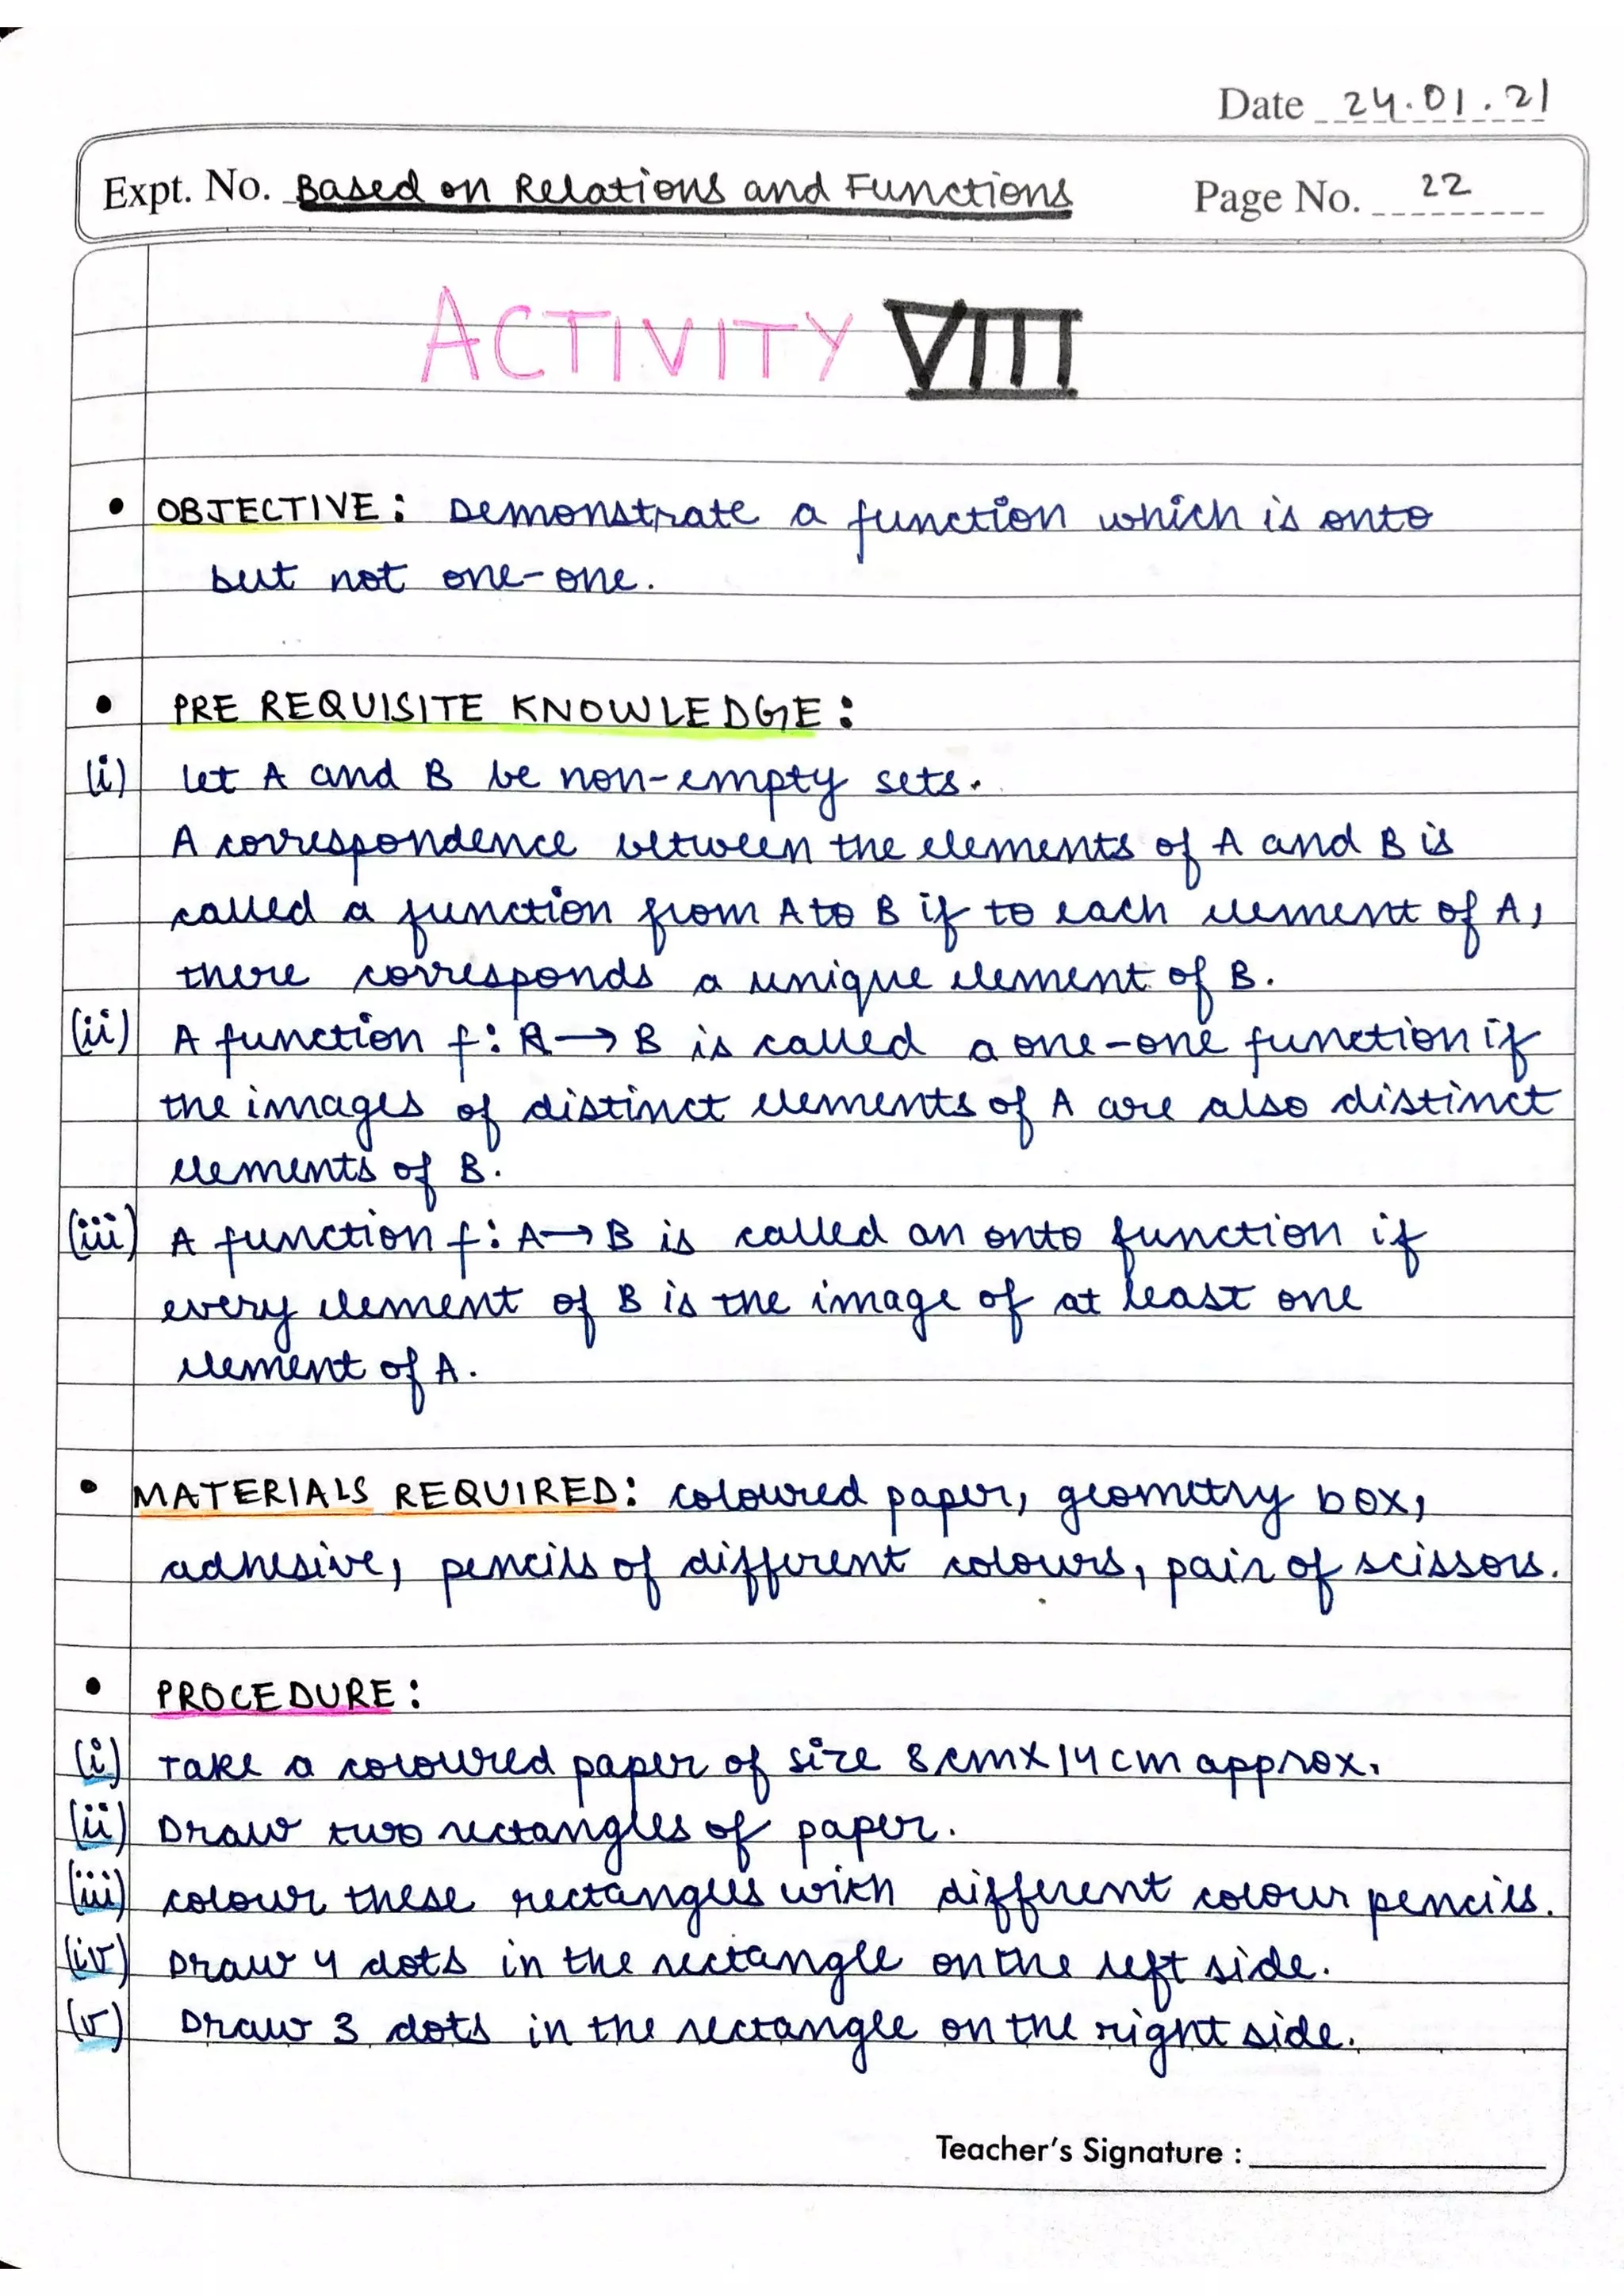 Date 24.01.21
Expt. No. Based on Relations and Functions Page No. 22
ACTIVITY VIII
• OBJECTIVE: Demonstrate a function which is onto
but not one-one.
• PRE REQUISITE KNOWLEDGE:
(i) Let A and B be non-empty sets.
A correspondence between the elements of A and B is
called a function from A to B if to each element of A,
there corresponds a unique element of B.
(ii) A function f: A → B is called a one-one function if
the images of distinct elements of A are also distinct
elements of B.
(iii) A function f: A → B is called an onto function if
every element of B is the image of at least one
element of A.
• MATERIALS REQUIRED: coloured paper, geometry box,
adhesive, pencils of different colours, pair of scissors.
• PROCEDURE:
(i) Take a coloured paper of size 8 cm x 14 cm approx.
(ii) Draw two rectangles of paper.
(iii) colour these rectangles with different colour pencils.
(iv) Draw 4 dots in the rectangle on the left side.
(v) Draw 3 dots in the rectangle on the right side.
Teacher's Signature :